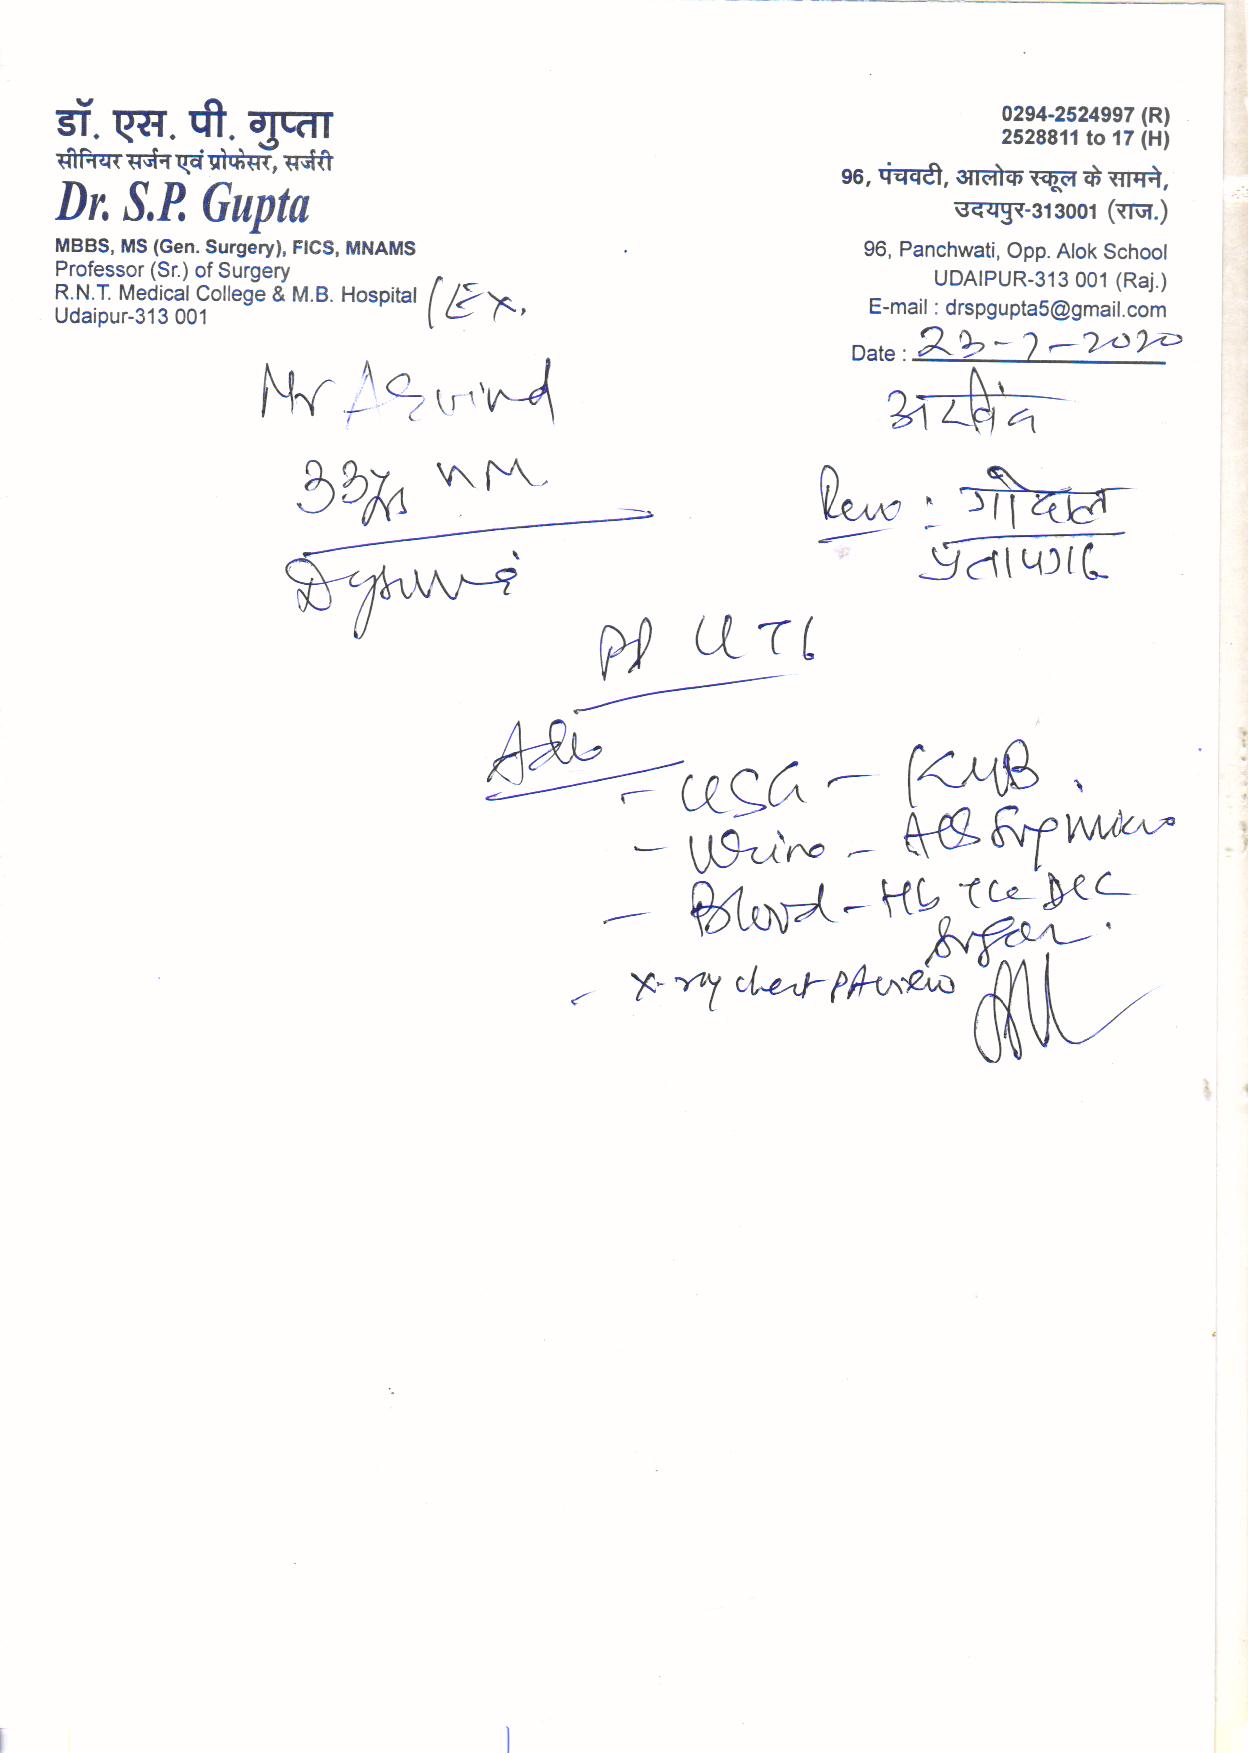 डॉ. एस. पी. गुप्ता
सीनियर सर्जन एवं प्रोफेसर, सर्जरी
Dr. S.P. Gupta
MBBS, MS (Gen. Surgery), FICS, MNAMS
Professor (Sr.) of Surgery
R.N.T. Medical College & M.B. Hospital (Ex.
Udaipur-313 001
0294-2524997 (R)
2528811 to 17 (H)
96, पंचवटी, आलोक स्कूल के सामने,
उदयपुर-313001 (राज.)
96, Panchwati, Opp. Alok School
UDAIPUR-313 001 (Raj.)
E-mail : drspgupta5@gmail.com
Date : 23-7-2020
Mr Arvind
अरविंद
33
प्रतापगढ
UTI
Adv
- USG - KUB.
- Urine - Alb Sug Micro
- Blood - Hb TLC DLC
Sugar.
- X-ray chest PA view